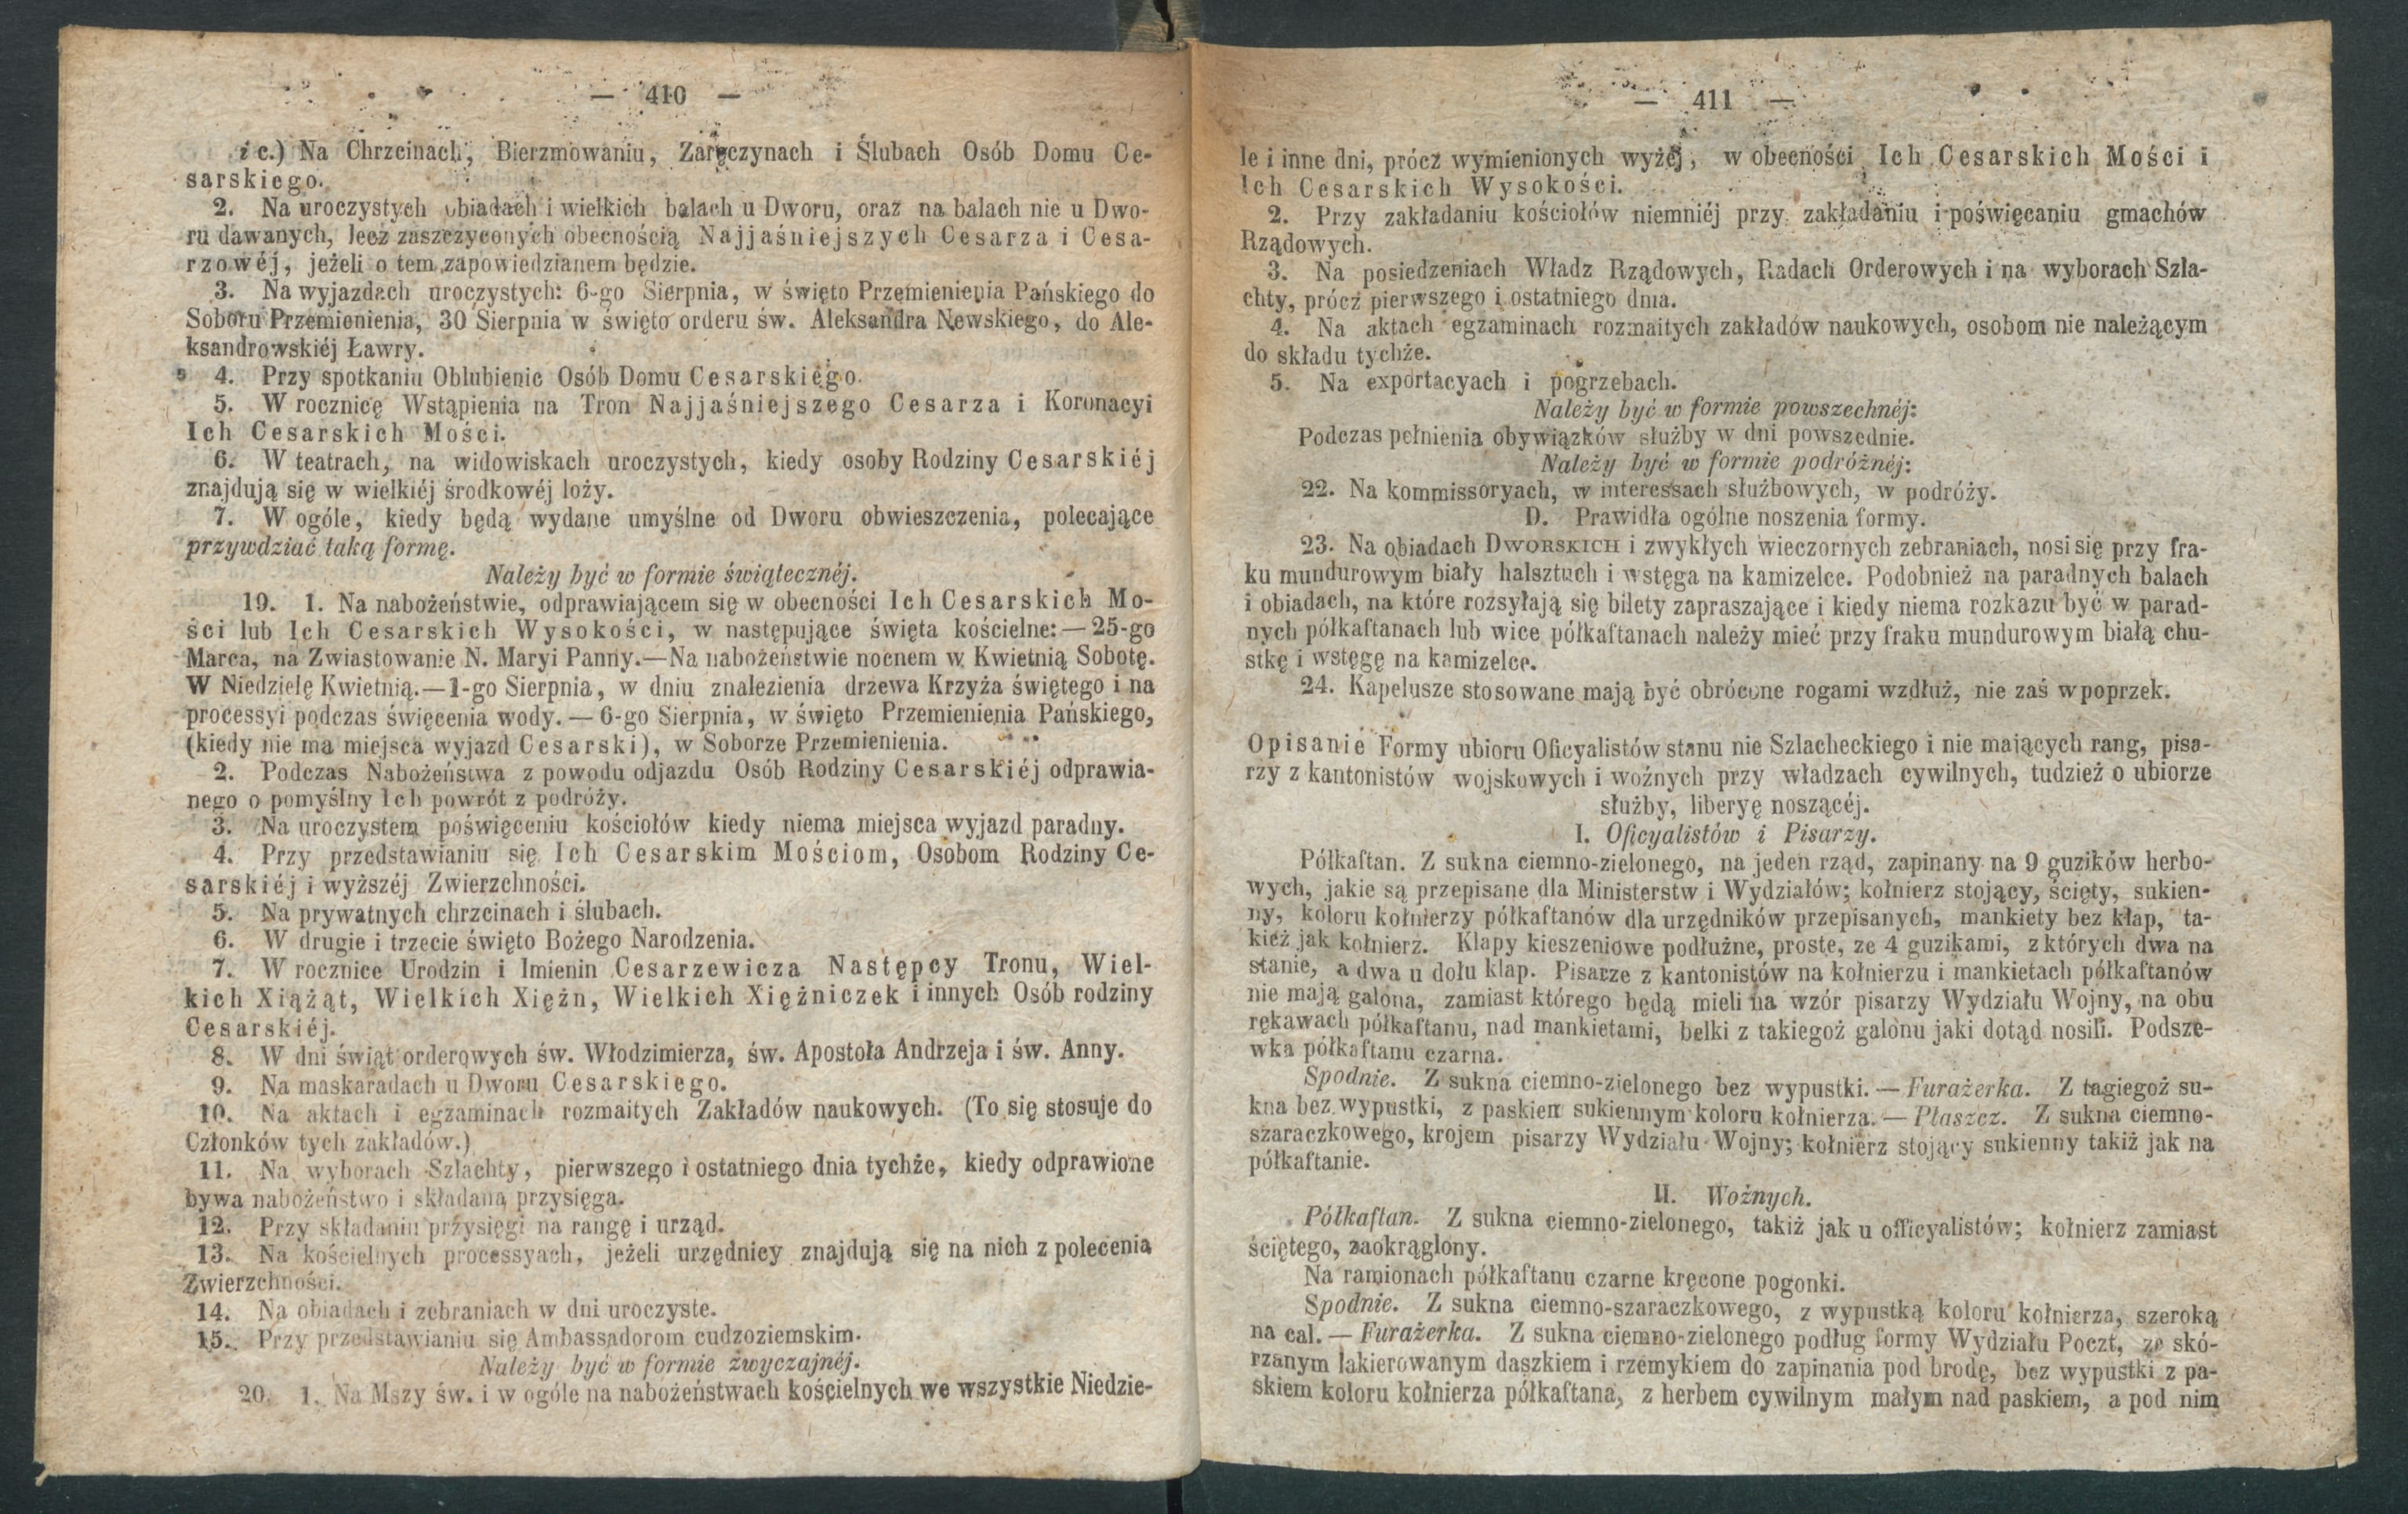 — 410 —
i c.) Na Chrzcinach, Bierzmowaniu, Zaręczynach i Ślubach Osób Domu Ce-
sarskiego.
2. Na uroczystych obiadach i wielkich balach u Dworu, oraz na balach nie u Dwo-
ru dawanych, lecz zaszczyconych obecnością Najjaśniejszych Cesarza i Cesa-
rzowéj, jeżeli o tem zapowiedzianem będzie.
3. Na wyjazdach uroczystych: 6-go Sierpnia, w święto Przemienienia Pańskiego do
Soboru Przemienienia, 30 Sierpnia w święto orderu św. Aleksandra Newskiego, do Ale-
ksandrowskiéj Ławry.
4. Przy spotkaniu Oblubienic Osób Domu Cesarskiégo.
5. W rocznicę Wstąpienia na Tron Najjaśniejszego Cesarza i Koronacyi
Ich Cesarskich Mości.
6. W teatrach, na widowiskach uroczystych, kiedy osoby Rodziny Cesarskiéj
znajdują się w wielkiéj środkowéj loży.
7. W ogóle, kiedy będą wydane umyślne od Dworu obwieszczenia, polecające
przywdziać taką formę.
Należy być w formie świątecznéj.
19. 1. Na nabożeństwie, odprawiającem się w obecności Ich Cesarskich Mo-
ści lub Ich Cesarskich Wysokości, w następujące święta kościelne: — 25-go
Marca, na Zwiastowanie N. Maryi Panny.—Na nabożeństwie nocnem w Kwietnią Sobotę.
W Niedzielę Kwietnią.—1-go Sierpnia, w dniu znalezienia drzewa Krzyża świętego i na
processyi podczas święcenia wody. — 6-go Sierpnia, w święto Przemienienia Pańskiego,
(kiedy nie ma miejsca wyjazd Cesarski), w Soborze Przemienienia.
2. Podczas Nabożeństwa z powodu odjazdu Osób Rodziny Cesarskiéj odprawia-
nego o pomyślny Ich powrót z podróży.
3. Na uroczystem poświęceniu kościołów kiedy niema miejsca wyjazd paradny.
4. Przy przedstawianiu się Ich Cesarskim Mościom, Osobom Rodziny Ce-
sarskiéj i wyższéj Zwierzchności.
5. Na prywatnych chrzcinach i ślubach.
6. W drugie i trzecie święto Bożego Narodzenia.
7. W rocznice Urodzin i Imienin Cesarzewicza Następcy Tronu, Wiel-
kich Xiążąt, Wielkich Xiężn, Wielkich Xiężniczek i innych Osób rodziny
Cesarskiéj.
8. W dni świąt orderowych św. Włodzimierza, św. Apostoła Andrzeja i św. Anny.
9. Na maskaradach u Dworu Cesarskiego.
10. Na aktach i egzaminach rozmaitych Zakładów naukowych. (To się stosuje do
Członków tych zakładów.)
11. Na wyborach Szlachty, pierwszego i ostatniego dnia tychże, kiedy odprawione
bywa nabożeństwo i składana przysięga.
12. Przy składaniu przysięgi na rangę i urząd.
13. Na kościelnych processyach, jeżeli urzędnicy znajdują się na nich z polecenia
Zwierzchności.
14. Na obiadach i zebraniach w dni uroczyste.
15. Przy przedstawianiu się Ambassadorom cudzoziemskim.
Należy być w formie zwyczajnéj.
20. 1. Na Mszy św. i w ogóle na nabożeństwach kościelnych we wszystkie Niedzie-
— 411 —
le i inne dni, prócz wymienionych wyżéj, w obecności Ich Cesarskich Mości i
Ich Cesarskich Wysokości.
2. Przy zakładaniu kościołów niemniéj przy zakładaniu i poświęcaniu gmachów
Rządowych.
3. Na posiedzeniach Władz Rządowych, Radach Orderowych i na wyborach Szla-
chty, prócz pierwszego i ostatniego dnia.
4. Na aktach egzaminach rozmaitych zakładów naukowych, osobom nie należącym
do składu tychże.
5. Na exportacyach i pogrzebach.
Należy być w formie powszechnéj:
Podczas pełnienia obywiązków służby w dni powszednie.
Należy być w formie podróżnéj:
22. Na kommissoryach, w interessach służbowych, w podróży.
D. Prawidła ogólne noszenia formy.
23. Na obiadach DWORSKICH i zwykłych wieczornych zebraniach, nosi się przy fra-
ku mundurowym biały halsztuch i wstęga na kamizelce. Podobnież na paradnych balach
i obiadach, na które rozsyłają się bilety zapraszające i kiedy niema rozkazu być w parad-
nych półkaftanach lub wice półkaftanach należy mieć przy fraku mundurowym białą chu-
stkę i wstęgę na kamizelce.
24. Kapelusze stosowane mają być obrócone rogami wzdłuż, nie zaś w poprzek.
Opisanie Formy ubioru Oficyalistów stanu nie Szlacheckiego i nie mających rang, pisa-
rzy z kantonistów wojskowych i woźnych przy władzach cywilnych, tudzież o ubiorze
służby, liberyę noszącéj.
I. Oficyalistów i Pisarzy.
Półkaftan. Z sukna ciemno-zielonego, na jeden rząd, zapinany na 9 guzików herbo-
wych, jakie są przepisane dla Ministerstw i Wydziałów; kołnierz stojący, ścięty, sukien-
ny, koloru kołnierzy półkaftanów dla urzędników przepisanych, mankiety bez kłap, ta-
kież jak kołnierz. Klapy kieszeniowe podłużne, proste, ze 4 guzikami, z których dwa na
stanie, a dwa u dołu klap. Pisarze z kantonistów na kołnierzu i mankietach półkaftanów
nie mają galona, zamiast którego będą mieli na wzór pisarzy Wydziału Wojny, na obu
rękawach półkaftanu, nad mankietami, belki z takiegoż galonu jaki dotąd nosili. Podsze-
wka półkaftanu czarna.
Spodnie. Z sukna ciemno-zielonego bez wypustki. — Furażerka. Z tagiegoż su-
kna bez wypustki, z paskiem sukiennym koloru kołnierza. — Płaszcz. Z sukna ciemno-
szaraczkowego, krojem pisarzy Wydziału Wojny; kołnierz stojący sukienny takiż jak na
półkaftanie.
II. Woźnych.
Półkaftan. Z sukna ciemno-zielonego, takiż jak u officyalistów; kołnierz zamiast
ściętego, zaokrąglony.
Na ramionach półkaftanu czarne kręcone pogonki.
Spodnie. Z sukna ciemno-szaraczkowego, z wypustką koloru kołnierza, szeroką
na cal. — Furażerka. Z sukna ciemno-zielonego podług formy Wydziału Poczt, ze skó-
rzanym lakierowanym daszkiem i rzemykiem do zapinania pod brodę, bez wypustki z pa-
skiem koloru kołnierza półkaftana, z herbem cywilnym małym nad paskiem, a pod nim